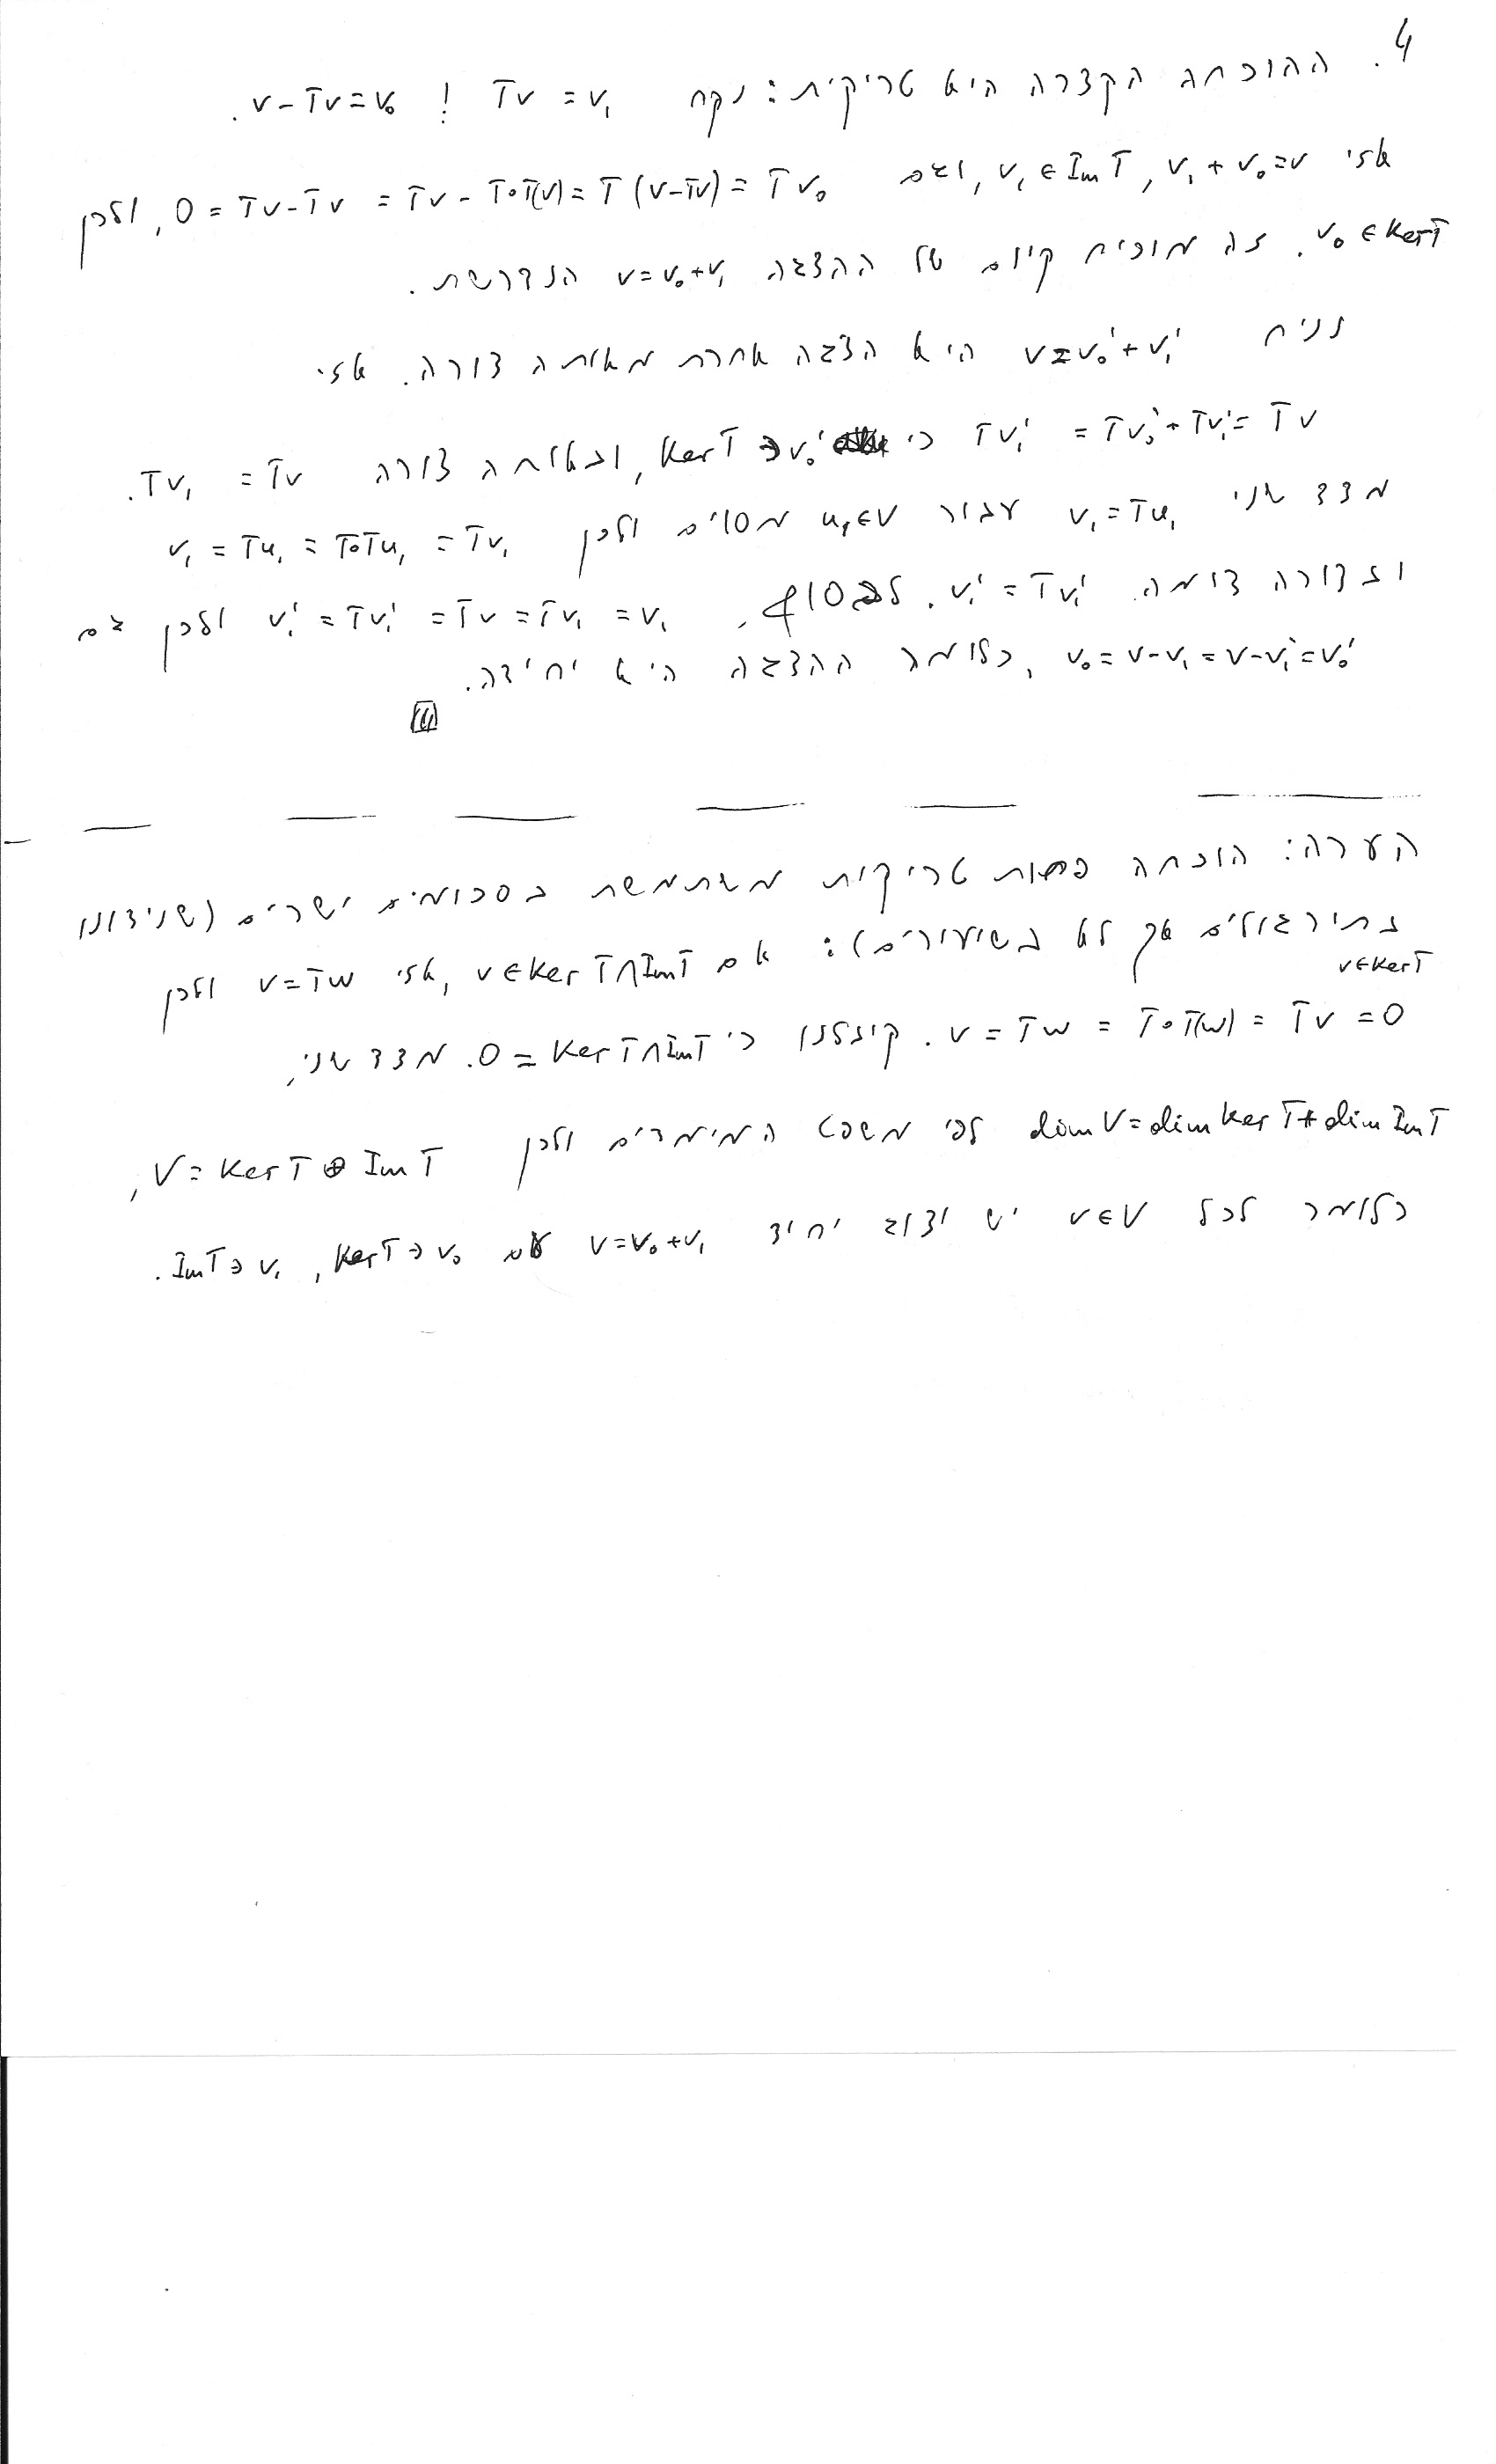 4. ההוכחה הקצרה היא טריקית: נקח Tv = v₁ ! v-Tv=v₀.
אזי v₁+v₀=v, v₁∈ImT, וגם 0 = Tv-Tv = Tv-T∘T(v) = T(v-Tv) = Tv₀, ולכן
v₀∈KerT. זה מוכיח קיום של ההצגה v=v₀+v₁ הנדרשת.
נניח v=v₀'+v₁' היא הצגה אחרת מאותה צורה. אזי
Tv₁' = Tv₀'+Tv₁' = Tv כי KerT∋v₀', ובאותה צורה Tv₁ = Tv.
מצד שני v₁=Tu₁ עבור u₁∈V מסוים ולכן v₁ = Tu₁ = T∘Tu₁ = Tv₁
ובצורה דומה v₁' = Tv₁'. לבסוף, v₁' = Tv₁' = Tv = Tv₁ = v₁ ולכן גם
v₀=v-v₁=v-v₁'=v₀', כלומר ההצגה היא יחידה.
הערה: הוכחה פחות טריקית משתמשת בסכומים ישרים (שנידונו
בתירגולים אך לא בשיעורים): אם v∈KerT∩ImT, אזי v=Tw ולכן
v∈KerT
v = Tw = T∘T(w) = Tv = 0. קיבלנו כי KerT∩ImT = 0. מצד שני,
dimV=dimKerT+dimImT לפי משפט המימדים ולכן V=KerT⊕ImT,
כלומר לכל v∈V יש יצוג יחיד v=v₀+v₁ עם KerT∋v₀, ImT∋v₁.